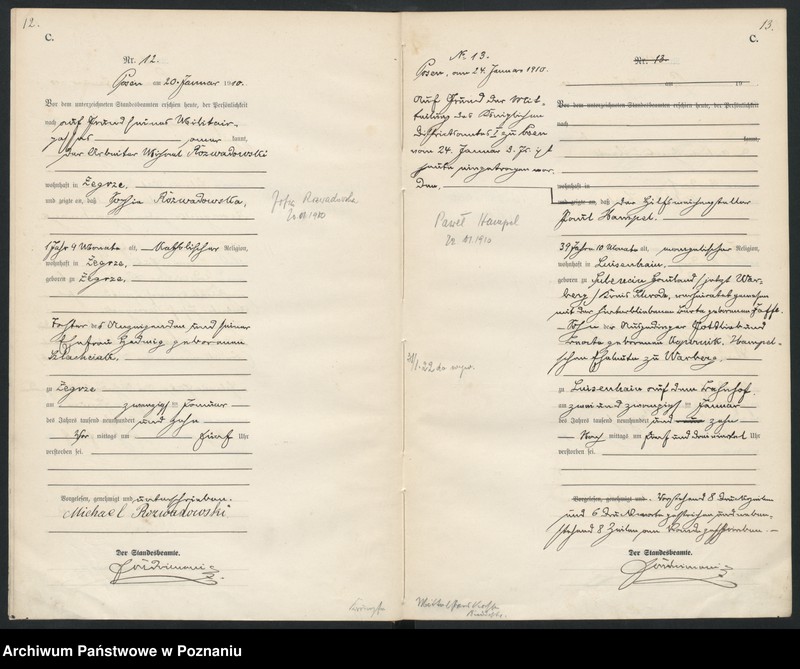 12.
C.
Nr. 12.
Posen am 20. Januar 1910.
Vor dem unterzeichneten Standesbeamten erschien heute, der Persönlichkeit
nach auf Grund seines Militair-
passes anerkannt,
der Arbeiter Michael Rozwadowski
wohnhaft in Żegrze,
und zeigte an, daß Sophie Rozwadowska,
Zofia Rozwadowska
20.01.1910
1 Jahr 9 Monate alt, katholischer Religion,
wohnhaft in Żegrze,
geboren zu Żegrze,
Tochter des Anzeigenden und seiner
Ehefrau Hedwig geborenen
Szlachciak.
zu Żegrze
am zwanzigsten Januar
des Jahres tausend neunhundert und zehn
Vor mittags um fünf Uhr
verstorben sei.
Vorgelesen, genehmigt und unterschrieben.
Michael Rozwadowski
Der Standesbeamte.
13.
C.
Nr. 13.
Posen, am 24. Januar 1910.
Auf Grund der Mit-
teilung des Königlichen
Distriktsamtes I zu Posen
vom 24. Januar d. Js. ist
heute eingetragen wor-
den,
Nr. 13
am 19
Vor dem unterzeichneten Standesbeamten erschien heute, der Persönlichkeit
nach
kannt,
wohnhaft in
und zeigte an, daß der Hilfsweichensteller
Paul Hampel.
Paweł Hampel
22.01.1910
39 Jahre 10 Monate alt, evangelischer Religion,
wohnhaft in Luisenhain,
geboren zu Hauland /jetzt War-
berg/ Kreis verheiratet gewesen
mit der hinterbliebenen geborenen
Sohn der Gottlieb und
geborenen Hampel-
schen Eheleute zu Warberg.
zu Luisenhain auf dem Bahnhof
am zwei und zwanzigsten Januar
des Jahres tausend neunhundert und zehn
Nach mittags um fünf und dreiviertel Uhr
verstorben sei.
Vorgelesen, genehmigt und. Vorstehend 8 Druckzeilen
und 6 Druckworte gestrichen, und neben-
stehend 8 Zeilen am Rande geschrieben.
Der Standesbeamte.
Archiwum Państwowe w Poznaniu